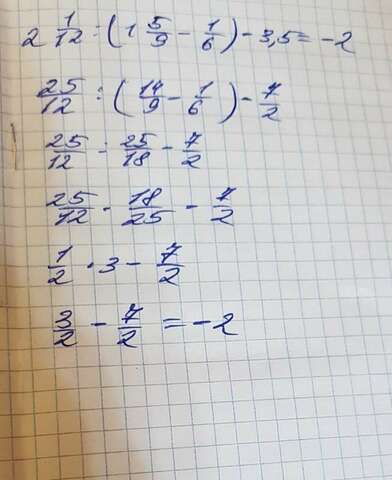 2 1/12 : (1 5/9 - 1/6) - 3,5 = -2
25/12 : (14/9 - 1/6) - 7/2
25/12 : 25/18 - 7/2
25/12 · 18/25 - 7/2
1/2 · 3 - 7/2
3/2 - 7/2 = -2